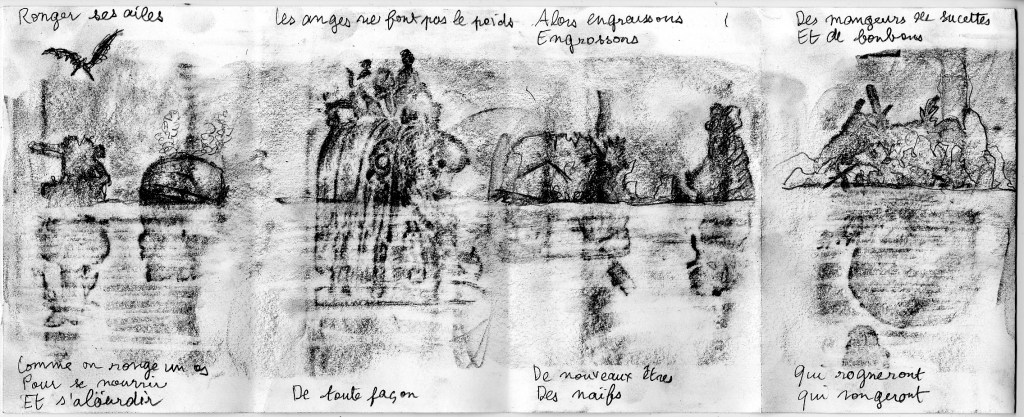 Ronger ses ailes
Comme on ronge un os
Pour se nourrir
Et s'alourdir
Les anges ne font pas le poids
De toute façon
Alors engraissons
Engrossons
De nouveaux êtres
Des naïfs
Des mangeurs de sucettes
Et de bonbons
Qui rogneront
Qui rongeront